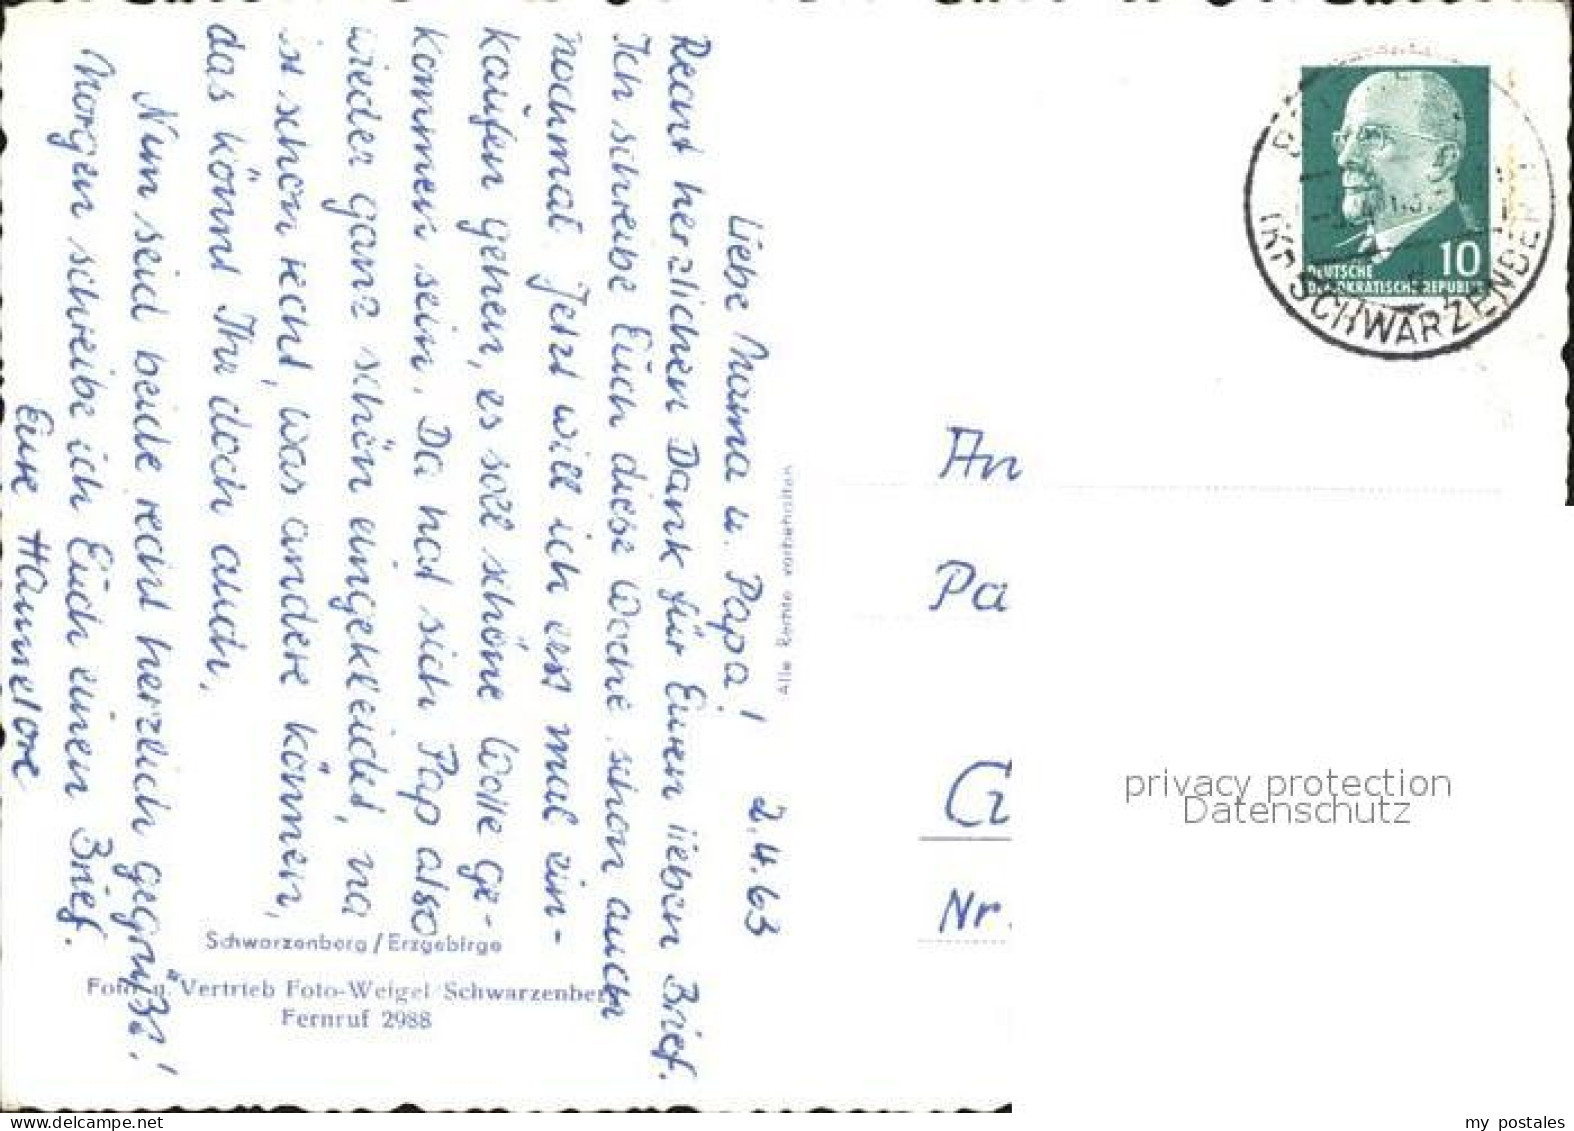 Liebe Mama u. Papa! 2.4.63
Recht herzlichen Dank für Euren lieben Brief.
Ich schreibe Euch diese Woche schon auch
nochmal. Jetzt will ich erst mal ein-
kaufen gehen, es soll schöne Wolle ge-
kommen sein. Da hat sich Pap also
wieder ganz schön eingekleidet, na
ist schon recht, was andere können,
das könnt Ihr doch auch.
Nun seid beide recht herzlich gegrüßt!
Morgen schreibe ich Euch einen Brief.
Eure Hannelore
Alle Rechte vorbehalten
Schwarzenberg / Erzgebirge
Foto u. Vertrieb Foto-Weigel Schwarzenberg
Fernruf 2988
10
DEUTSCHE
DEMOKRATISCHE REPUBLIK
(KR SCHWARZENBERG)
An
Pa
G
Nr.
privacy protection
Datenschutz
delcampe.net
my postales